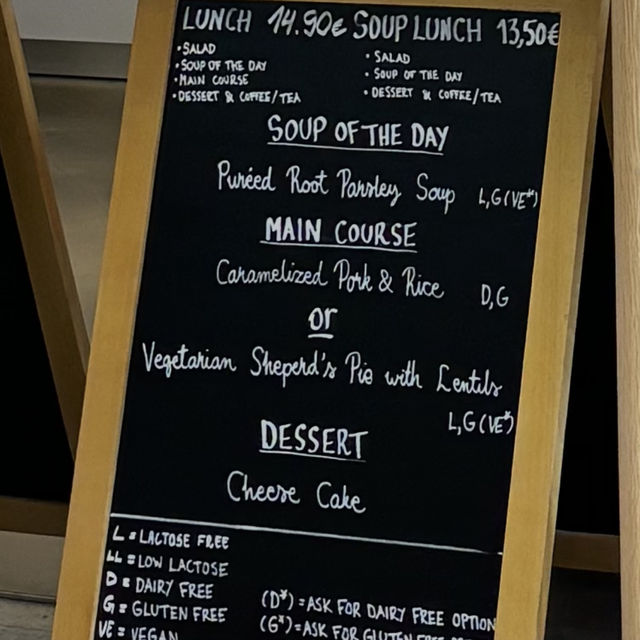 LUNCH 14.90€ SOUP LUNCH 13,50€
• SALAD
• SOUP OF THE DAY
• MAIN COURSE
• DESSERT & COFFEE/TEA
• SALAD
• SOUP OF THE DAY
• DESSERT & COFFEE/TEA
SOUP OF THE DAY
Puréed Root Parsley Soup L,G(VE*)
MAIN COURSE
Caramelized Pork & Rice D,G
or
Vegetarian Sheperd's Pie with Lentils
L,G(VE*)
DESSERT
Cheese Cake
L = LACTOSE FREE
LL = LOW LACTOSE
D = DAIRY FREE
G = GLUTEN FREE
VE = VEGAN
(D*) = ASK FOR DAIRY FREE OPTION
(G*) = ASK FOR GLUTEN FREE